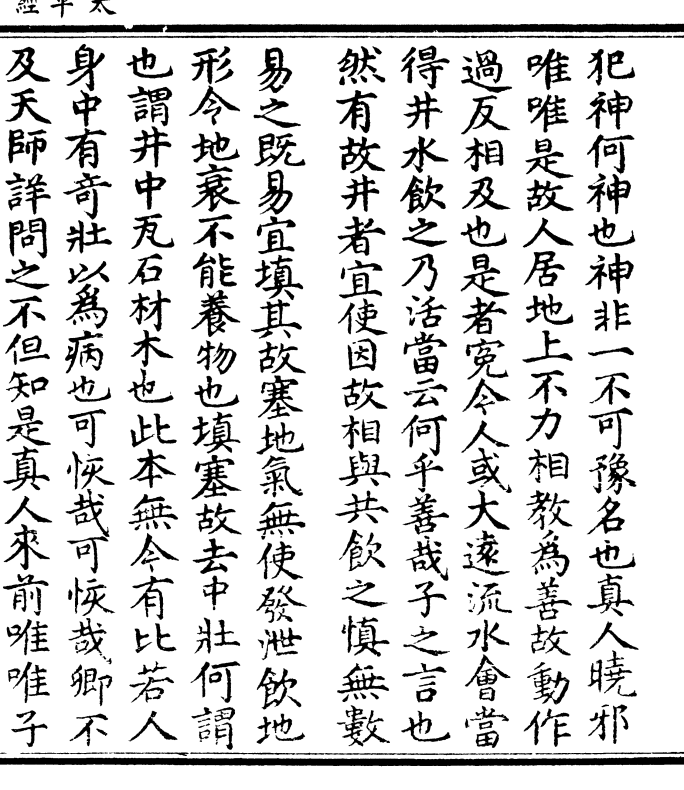 太平經
犯神何神也神非一不可豫名也真人曉邪
唯唯是故人居地上不力相教為善故動作
過反相及也是者寃今人或大遠流水會當
得井水飲之乃活當云何乎善哉子之言也
然有故井者宜使因故相與共飲之慎無數
易之既易宜填其故塞地氣無使發泄飲地
形令地衰不能養物也填塞故去中壯何謂
也謂井中瓦石材木也此本無今有比若人
身中有奇壯以為病也可恢哉可恢哉卿不
及天師詳問之不但知是真人來前唯唯子